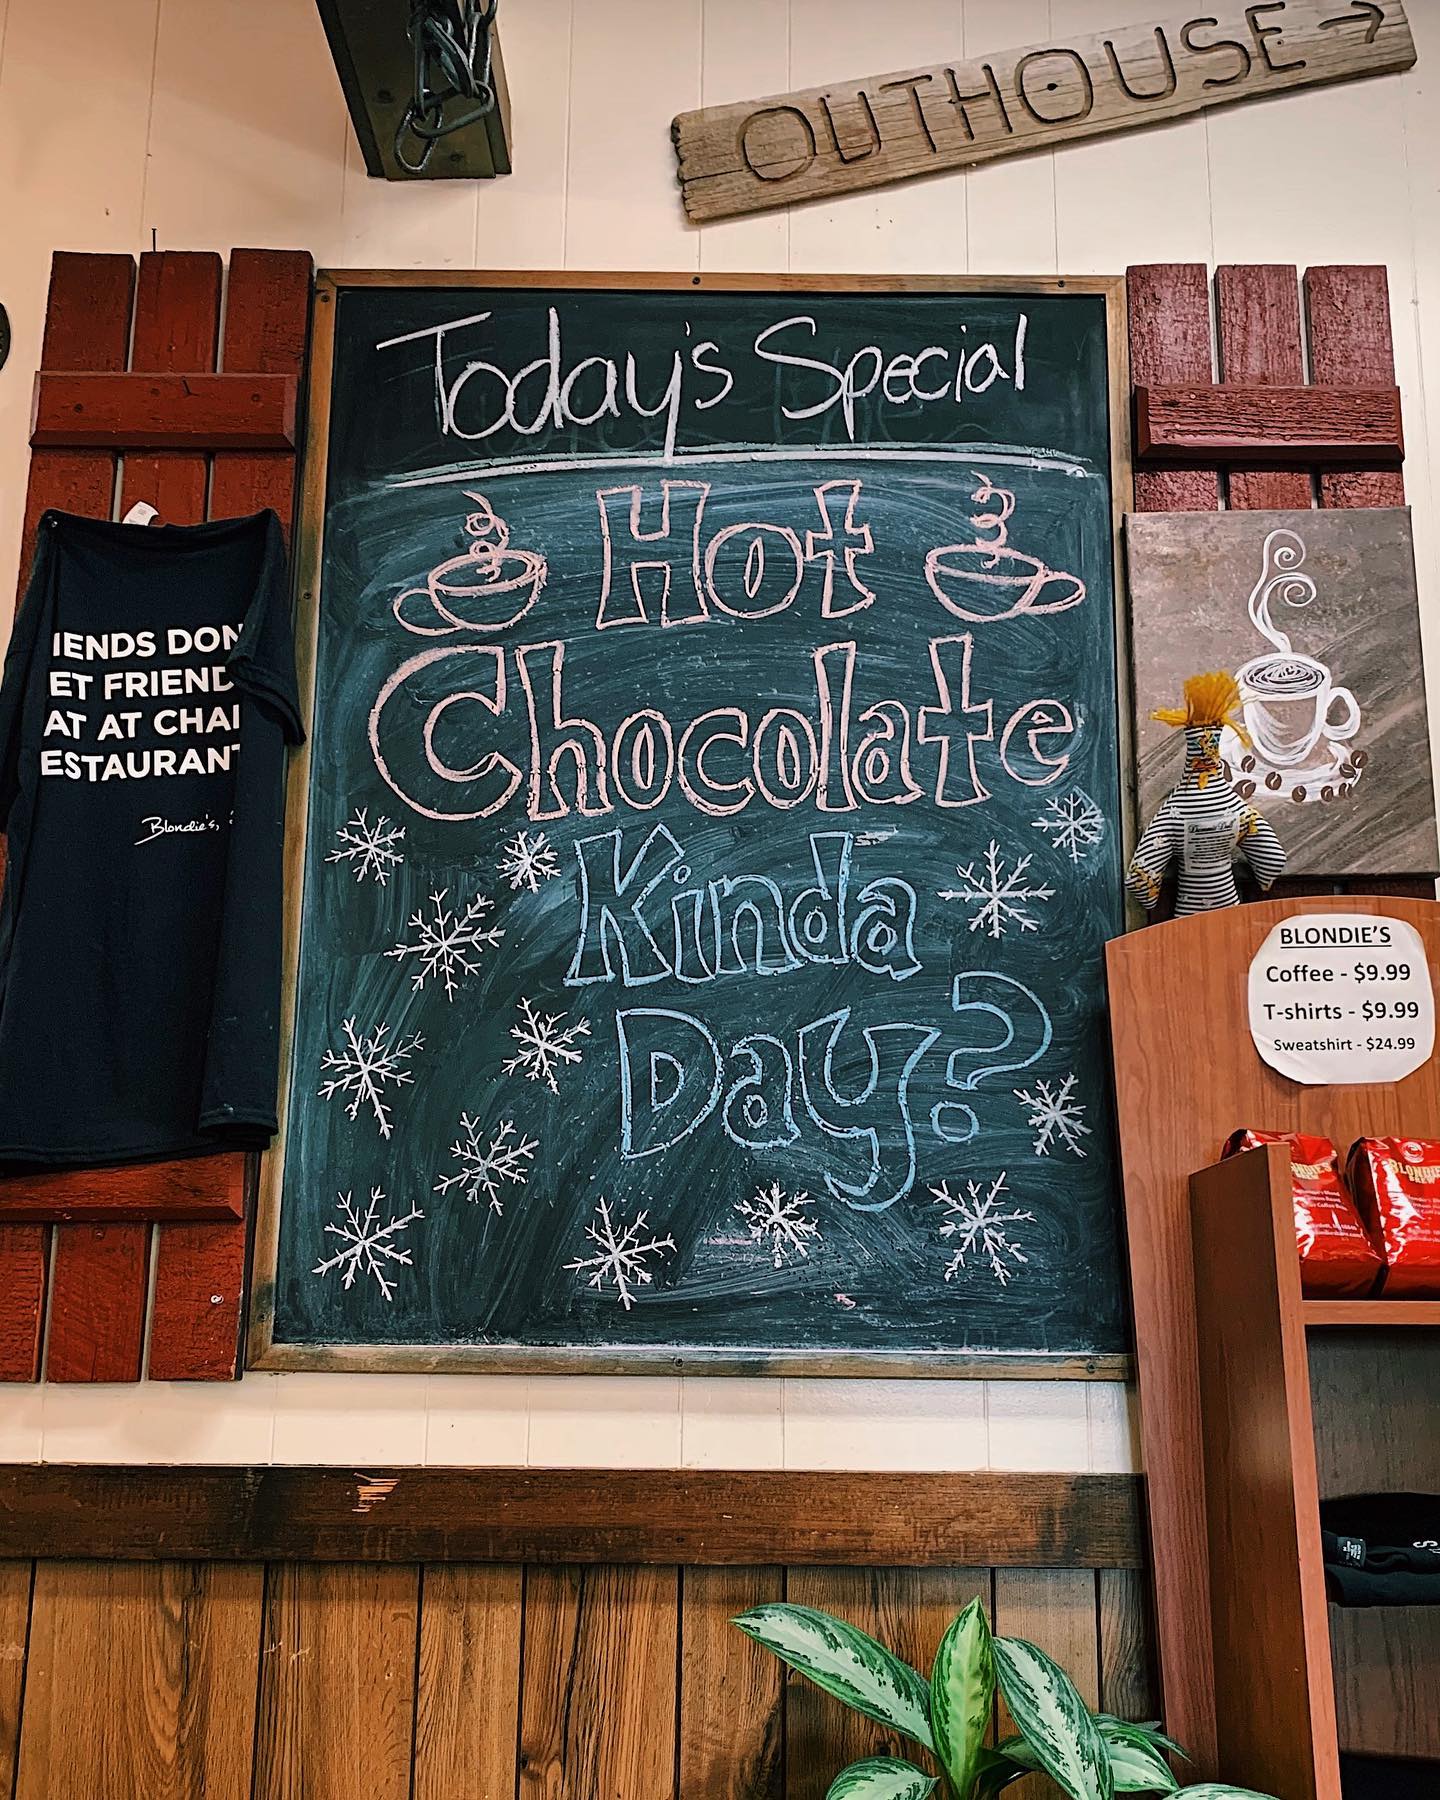 OUTHOUSE →
Today's Special
Hot
Chocolate
Kinda
Day?
IENDS DON
ET FRIEND
AT AT CHAI
ESTAURANT
Blondie's,
BLONDIE'S
Coffee - $9.99
T-shirts - $9.99
Sweatshirt - $24.99
BLONDIE'S
BREW